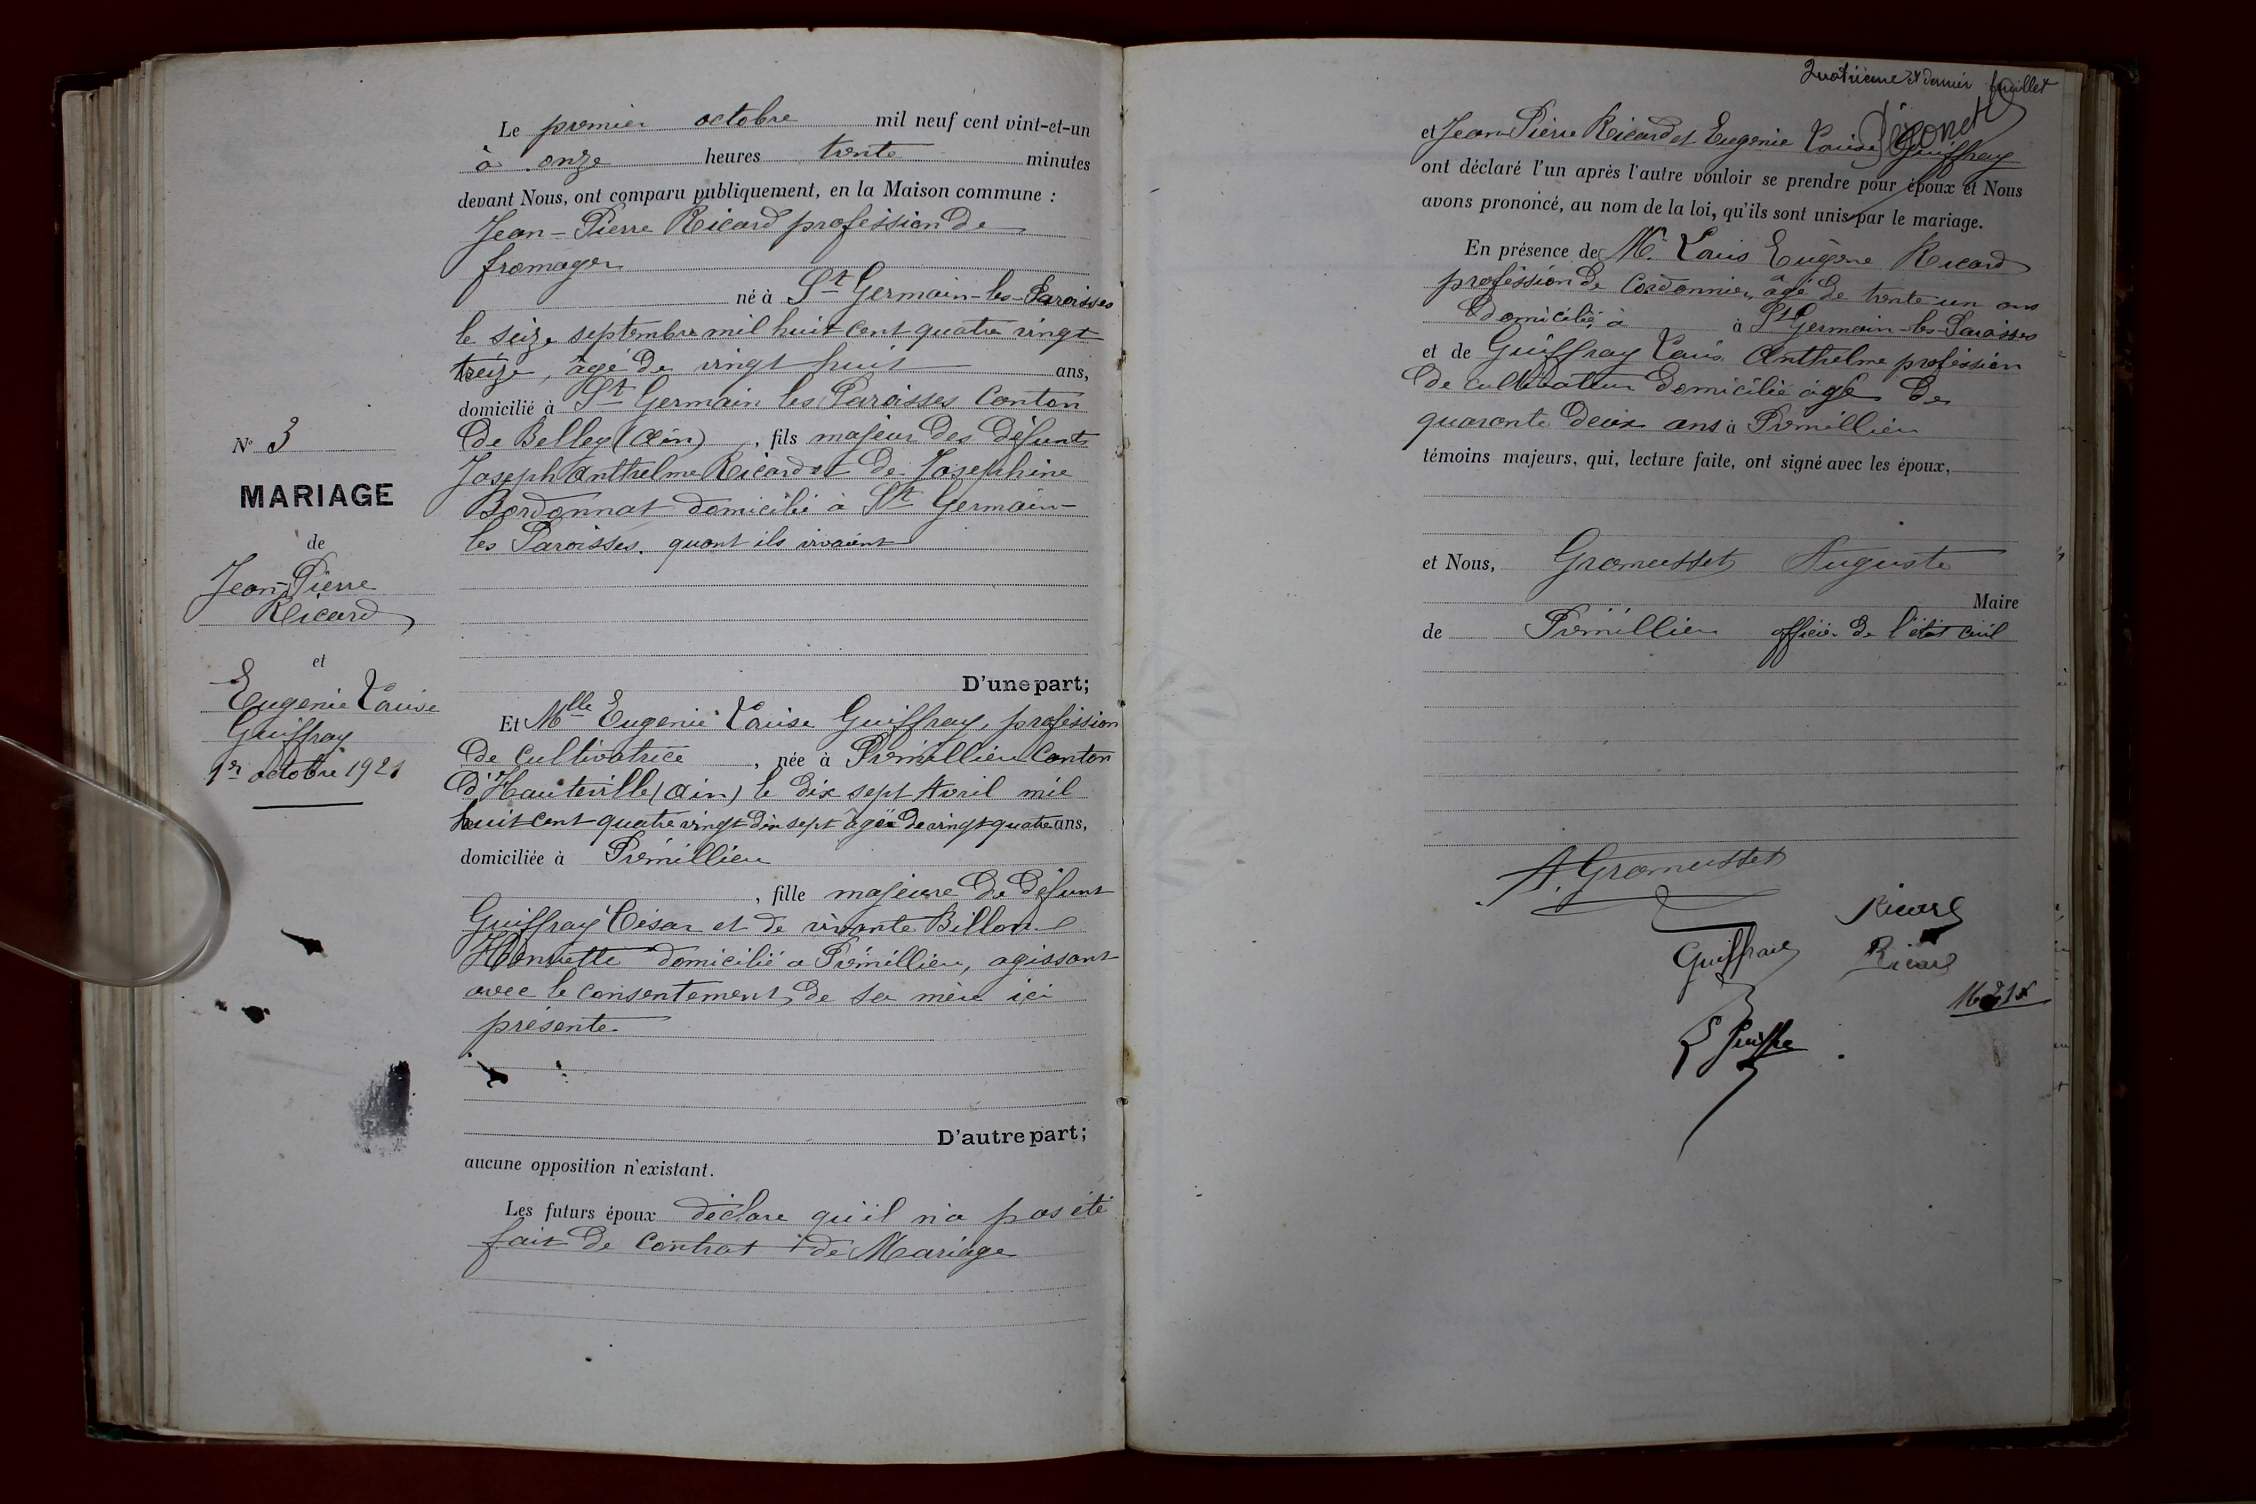 Le premier octobre mil neuf cent vint-et-un
à onze heures trente minutes
devant Nous, ont comparu publiquement, en la Maison commune :
Jean-Pierre Ricard profession de
fromager
né à St Germain-les-Paroisses
le seize septembre mil huit cent quatre vingt
treize, âgé de vingt huit ans,
domicilié à St Germain les Paroisses Canton
de Belley (Ain), fils majeur des défunts
Joseph Anthelme Ricard et de Josephine
Bordonnat domicilié à St Germain-
les Paroisses. quant ils vivaient
N° 3
MARIAGE
de
Jean-Pierre
Ricard
et
Eugenie Louise
Guiffray
1er octobre 1921
D'une part;
Et Mlle Eugenie Louise Guiffray, profession
de cultivatrice, née à Prémillieu Canton
d'Hauteville (Ain) le dix sept Avril mil
huit cent quatre vingt dix sept âgée de vingt quatre ans,
domiciliée à Prémillieu
, fille majeure de défunt
Guiffray César et de vivante Billon
Henriette domicilié a Prémillieu, agissant
avec le consentement de sa mère ici
présente
D'autre part;
aucune opposition n'existant.
Les futurs époux déclare qu'il n'a pas été
fait de contrat de Mariage
Quatrième et dernier feuillet
et Jean-Pierre Ricard et Eugenie Louise Guiffray
ont déclaré l'un après l'autre vouloir se prendre pour époux et Nous
avons prononcé, au nom de la loi, qu'ils sont unis par le mariage.
En présence de Mr. Louis Eugène Ricard
profession de Cordonnier, âgé de trente un ans
domicilié à à St Germain-les-Paroisses
et de Guiffray Louis Anthelme profession
de cultivateur domicilié âgé de
quarante deux ans à Prémillieu
témoins majeurs, qui, lecture faite, ont signé avec les époux,
et Nous, Gromusset Auguste
Maire
de Prémillieu officier de l'état civil
A. Gromusset
Ricard
Guiffray
Ricard